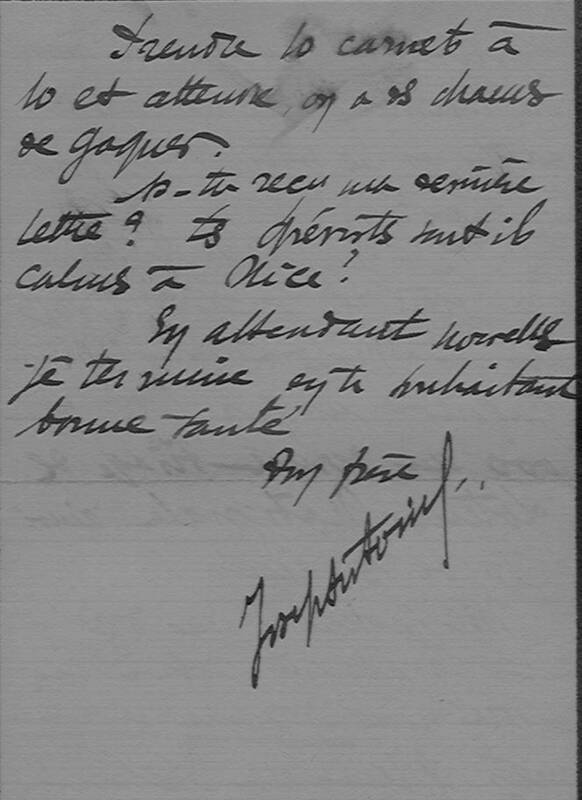 Prendre le carnet à
lo et attendre, on a des chances
de gagner.
As-tu reçu ma dernière
lettre? Les esprits sont ils
calmes à Nice?
En attendant nouvelles
je termine en te souhaitant
bonne santé
Ton frère